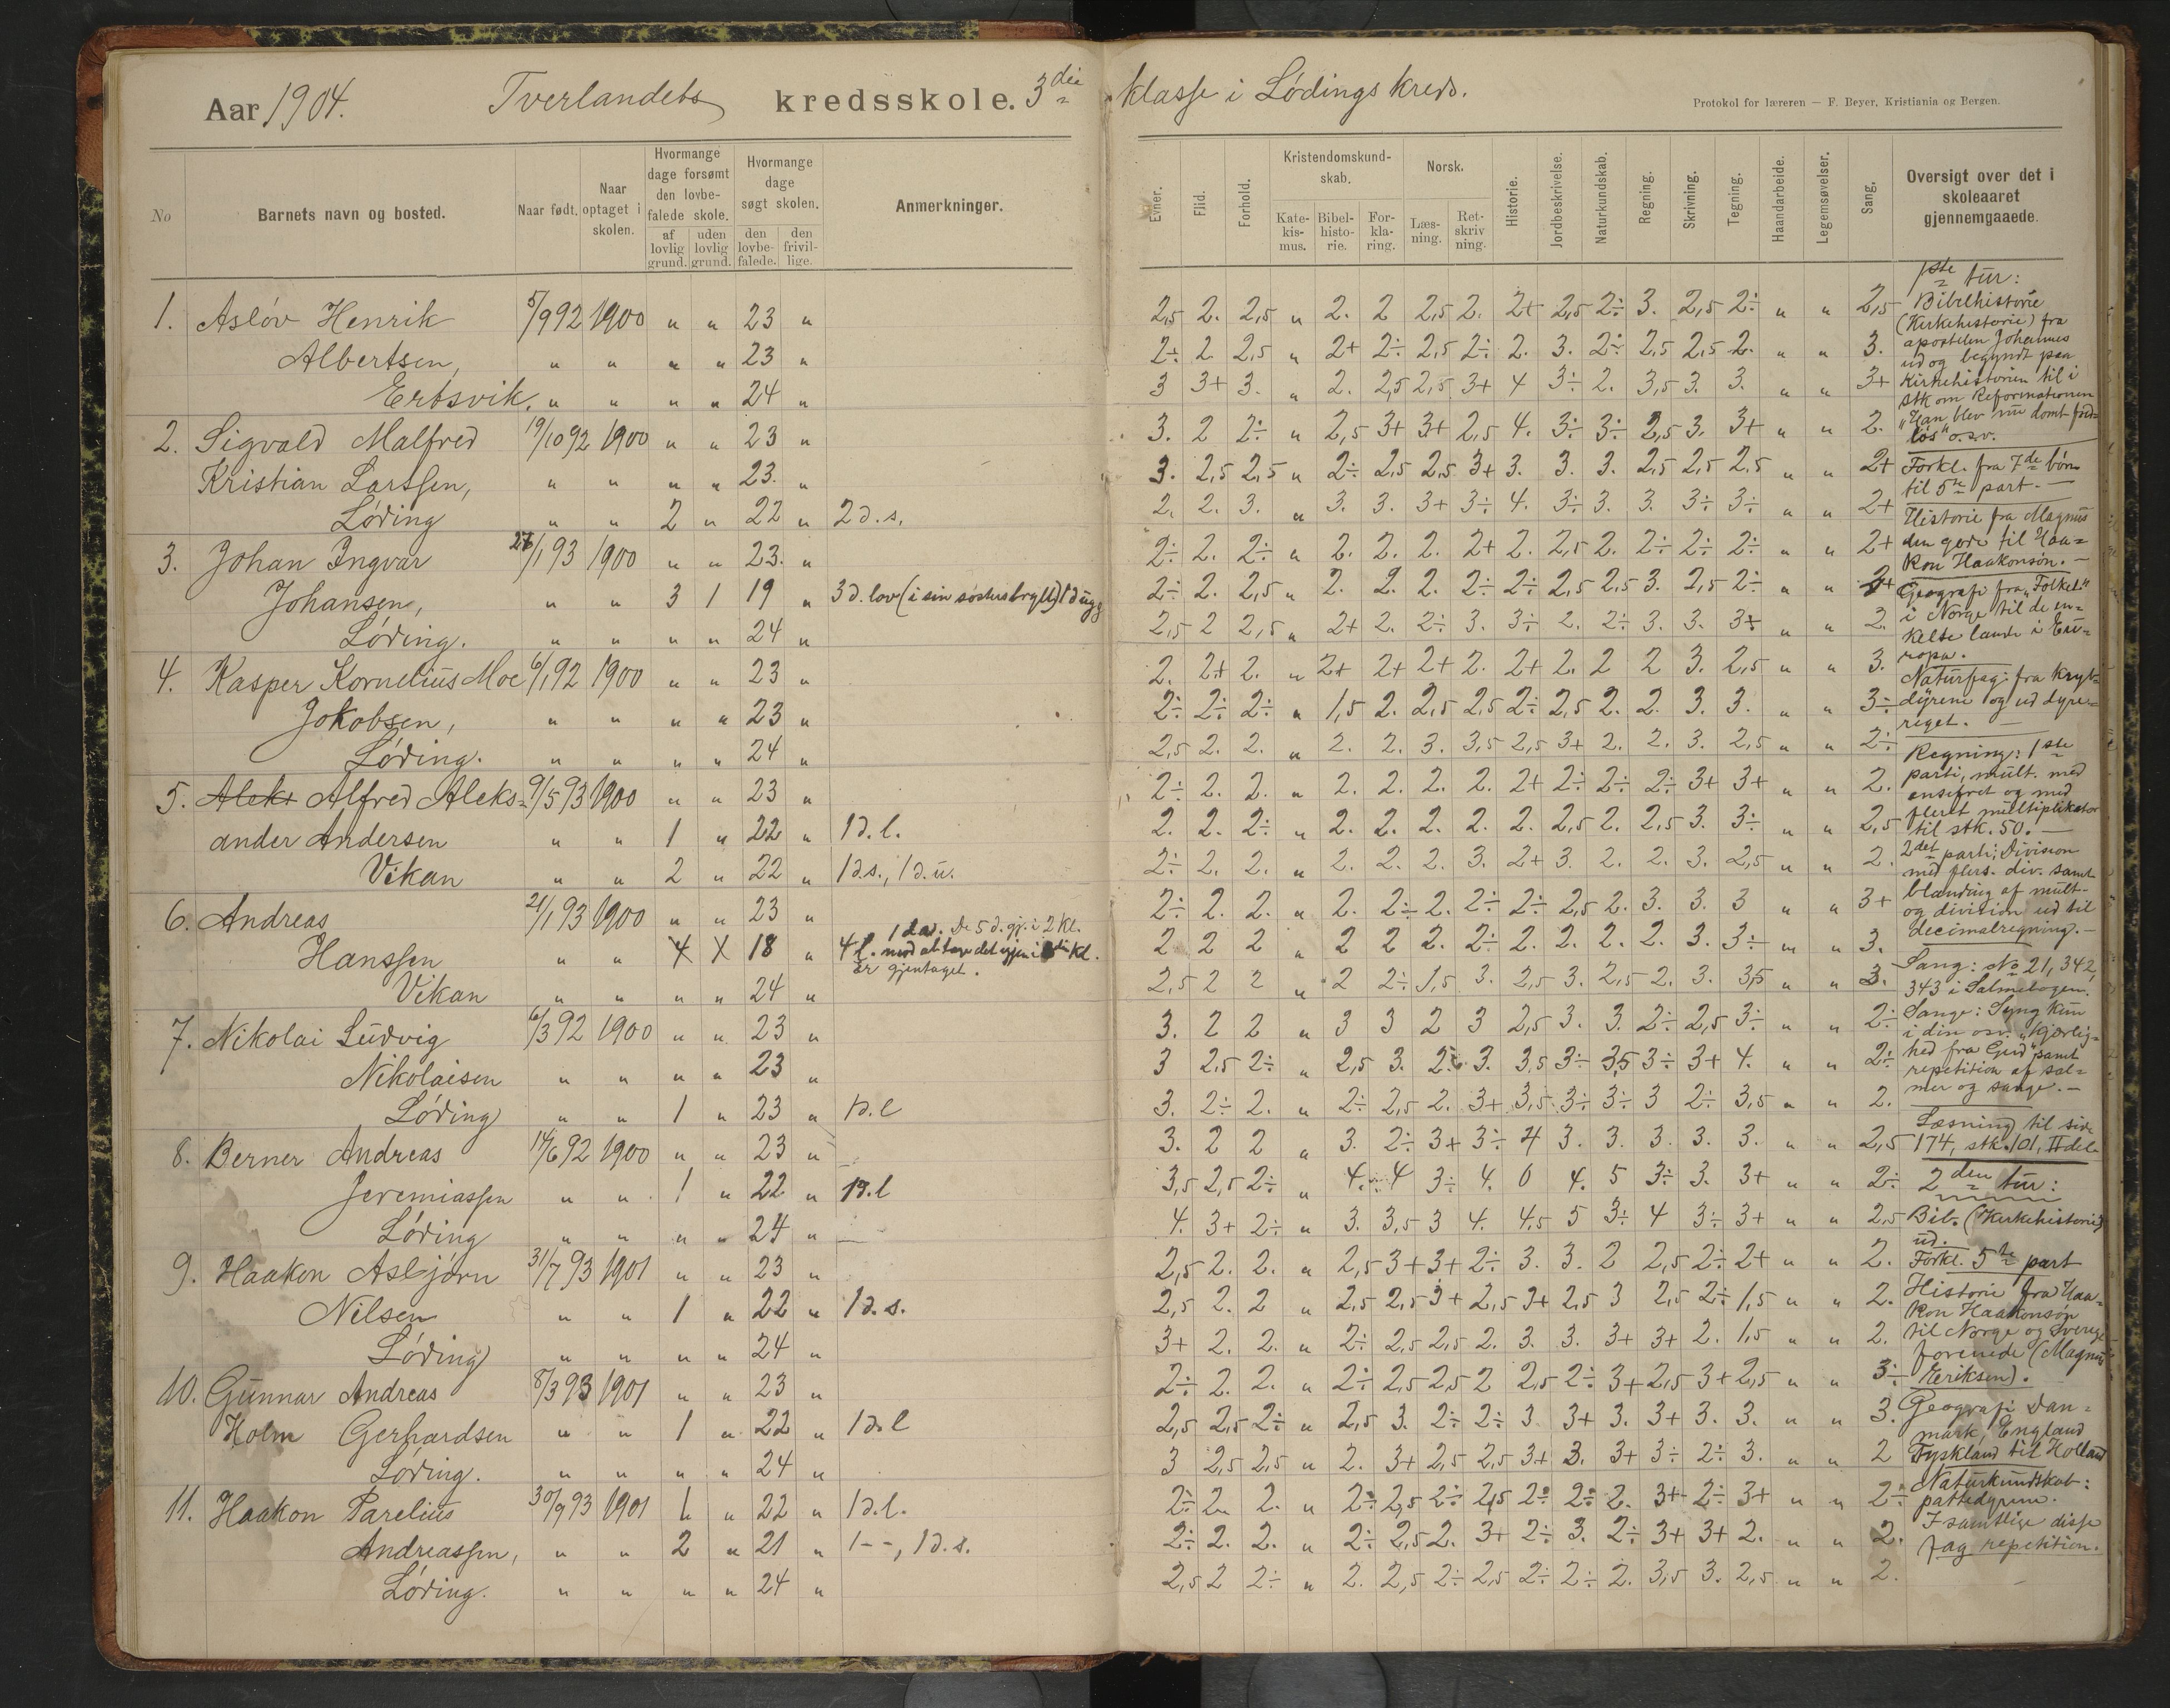 Aar 1904. Tverlandets kredsskole. 3die klasse i Lødings kreds.
Protokol for læreren — F. Beyer, Kristiania og Bergen.
No
Barnets navn og bosted.
Naar født.
Naar optaget i skolen.
Hvormange dage forsømt den lovbefalede skole.
af lovlig grund.
uden lovlig grund.
Hvormange dage søgt skolen.
den lovbefalede.
den frivillige.
Anmerkninger.
Evner.
Flid.
Forhold.
Kristendomskundskab.
Katekismus.
Bibelhistorie.
Forklaring.
Norsk.
Læsning.
Retskrivning.
Historie.
Jordbeskrivelse.
Naturkundskab.
Regning.
Skrivning.
Tegning.
Haandarbeide.
Legemsøvelser.
Sang.
Oversigt over det i skoleaaret gjennemgaaede.
1. Asløv Henrik 5/9 92 1900 " " 23 "
Albertsen, " " " " 23 "
Ertsvik. " " " " 24 "
2. Sigvald Malfred 19/10 92 1900 " " 23 "
Kristian Larssen, " " " " 23. "
Løding " " 2 " 22 " 2 d. s.
3. Johan Ingvar 1/93 1900 " " 23. "
Johansen, " " 3 1 19 " 3 d. lov (i sin søsters bryll.)
Løding. " " " " 24 "
4. Kasper Kornelius Moe 6/1 92 1900 " " 23 "
Jakobsen, " " " " 23 "
Løding. " " " " 24 "
5. Alfred Aleks- 9/5 93 1900 " " 23 "
ander Andersen " " 1 " 22 " 1 d. l.
Vikan " " 2 " 22 " 1 d. s., 1 d. u.
6. Andreas 21/1 93 1900 " " 23 "
Hanssen " " 18 "
De 5 d. gj. i 2 kl.
Er gjentaget.
Vikan " " " " 24 "
7. Nikolai Ludvig 6/3 92 1900 " " 23 "
Nikolaisen " " " " 23 "
Løding " " 1 " 23 " 1 d. l
8. Berner Andreas 14/6 92 1900 " " 23 "
Jeremiassen " " 1 " 22 " 1 d. l
Løding " " " " 24 "
9. Haakon Asbjørn 31/7 93 1901 " " 23 "
Nilsen " " 1 " 22 " 1 d. s.
Løding " " " " 24 "
10. Gunnar Andreas 8/3 93 1901 " " 23 "
Holm Gerhardsen " " 1 " 22 " 1 d. l
Løding. " " " " 24 "
11. Haakon Parelius 30/9 93 1901 1 " 22 " 1 d. l.
Andreassen, " " 2 " 21 " 1 - -, 1 d. s.
Løding. " " " " 24 "
2,5 2. 2,5 " 2. 2 2,5 2. 2+ 2,5 2÷ 3. 2,5 2÷ " " 2,5
2÷ 2 2,5 " 2+ 2÷ 2,5 2÷ 2. 3. 2÷ 2,5 2,5 2. " " 3.
3 3+ 3. " 2. 2,5 2,5 3+ 4 3÷ 2. 3,5 3. 3. " " 3+
3. 2 2÷ " 2,5 3+ 3+ 2,5 4. 3÷ 3÷ 2,5 3. 3+ " " 2.
3. 2,5 2,5 " 2÷ 2,5 2,5 3+ 3. 3. 3. 2,5 2,5 2,5 " " 2+
2. 2. 3. " 3. 3. 3+ 3÷ 4. 3÷ 3. 3. 3÷ 3÷ " " 2+
2÷ 2. 2÷ " 2. 2. 2. 2+ 2. 2,5 2. 2÷ 2÷ 2÷ " " 2+
2÷ 2. 2,5 " 2. 2. 2. 2÷ 2÷ 2,5 2,5 3. 2,5 2÷ " "
2,5 2 2,5 " 2+ 2. 2÷ 3. 3÷ 2. 2÷ 3. 3. " " 2.
2. 2+ 2. " 2+ 2+ 2+ 2. 2+ 2. 2 2 3. 2,5 " " 3.
2÷ 2÷ 2÷ " 1,5 2. 2,5 2,5 2÷ 2,5 2. 2. 3. 3. " " 3÷
2,5 2. 2. " 2. 2. 3. 3,5 2,5 3+ 2. 2. 3. 2,5 " " 2÷
2÷ 2. 2. " 2. 2. 2. 2. 2+ 2÷ 2÷ 2÷ 3+ 3+ " " 2.
2. 2. 2÷ " 2. 2. 2. 2. 2. 2,5 2. 2,5 3. 3÷ " " 2,5
2÷ 2. 2. " 2. 2. 2. 3. 2+ 3. 2. 2. 3. 2,5 " " 2.
2÷ 2. 2. " 2. 2÷ 2. 2÷ 2÷ 2,5 2. 3. 3. 3 " " 3+
2 2 2 " 2 2 2. 2÷ 2. 2. 2. 2. 3. 3÷ " " 3.
2,5 2 2 " 2 2÷ 1,5 3. 2,5 3. 2,5 2. 3. 3,5 " " 3.
3. 2 2 " 3 3 2 3 2,5 3. 3. 2÷ 2,5 3÷ " " 2÷
3 2,5 2÷ " 2,5 3. 3. 3,5 3÷ 3,5 3÷ 3+ 4. " " 2÷
3. 2÷ 2. " 2÷ 2,5 2. 3+ 3,5 3÷ 3÷ 3 2÷ 3,5 " " 2.
3. 2 2 " 3. 2÷ 3+ 3÷ 4 3. 3. 3. 3. 3. " " 2,5
3,5 2,5 2÷ " 4. 4 3÷ 4. 0 4. 5 3÷ 3. 3+ " " 2÷
4. 3+ 2÷ " 3. 3,5 3 4. 4,5 5 3÷ 4 3÷ 3+ " " 2,5
2,5 2. 2. " 2,5 3+ 3+ 2÷ 3. 3. 2 2,5 2÷ 2+ " " 2.
2,5 2. 2 " 2,5 2,5 3+ 2,5 3+ 2,5 3 2,5 2÷ 1,5 " " 2.
3+ 2. 2. " 2÷ 2,5 2,5 2. 3. 3. 3+ 3+ 2. 1,5 " " 2.
2÷ 2. 2. " 2÷ 2,5 2,5 2 2,5 2÷ 3+ 2,5 3+ 2,5 " " 3÷
2,5 2,5 2÷ " 2,5 3. 2÷ 2÷ 3 3+ 3. 3+ 3. 3. " " 3.
3 2,5 2,5 " 2. 3+ 2,5 2,5 3+ 3. 3+ 3÷ 2÷ 3. " " 2
2÷ 2. 2. " 2÷ 2,5 2÷ 2,5 2÷ 2÷ 2. 3+ 2÷ 3+ " " 2÷
2÷ 2. 2. " 2÷ 2,5 2. 3+ 2÷ 3. 2÷ 3+ 3+ 2. " " 2.
2,5 2 2÷ " 2. 2,5 2÷ 2,5 2÷ 2÷ 2. 3,5 3. 2,5 " " 2.
1ste tur:
Bibelhistorie
(Kirkehistorie) fra
apostelen Johannes
ud og begyndt paa
Kirkehistorien til i
stk om Reformationen
"Han blev nu dømt fred-
løs" o.s.v.
Forkl. fra 7de bøn
til 5te part. —
Historie fra Magnus
den gode til Haa-
kon Haakonsøn. —
Geografi fra "Folket"
i Norge til de en-
kelte lande i Eu-
ropa.
Naturfag: fra kryb-
dyrene og ud dyre-
riget. —
Regning: 1ste
parti, mult. med
ensifret og med
fleret multiplikator
til stk. 50. —
2det parti; Division
med flers. div. samt
blanding af mult-
og division ud til
decimalregning. —
Sang: No 21, 342,
343 i Salmebogen.
Sange: Syng kun
i din osv. "Kjærlig-
hed fra Gud" samt
repetition af sal-
mer og sange. —
Læsning til side
174, stk. 101, II del.
2den tur:
Bib. (Kirkehistorie)
ud.
Forkl. 5te part
Historie fra Haa-
kon Haakonsøn
til Norge og Sverige
forenede (Magnus
Eriksen).
Geografi Dan-
mark, England
Tyskland til Holland
Naturkundskab:
pattedyrene.
I samtlige disse
fag repetition.